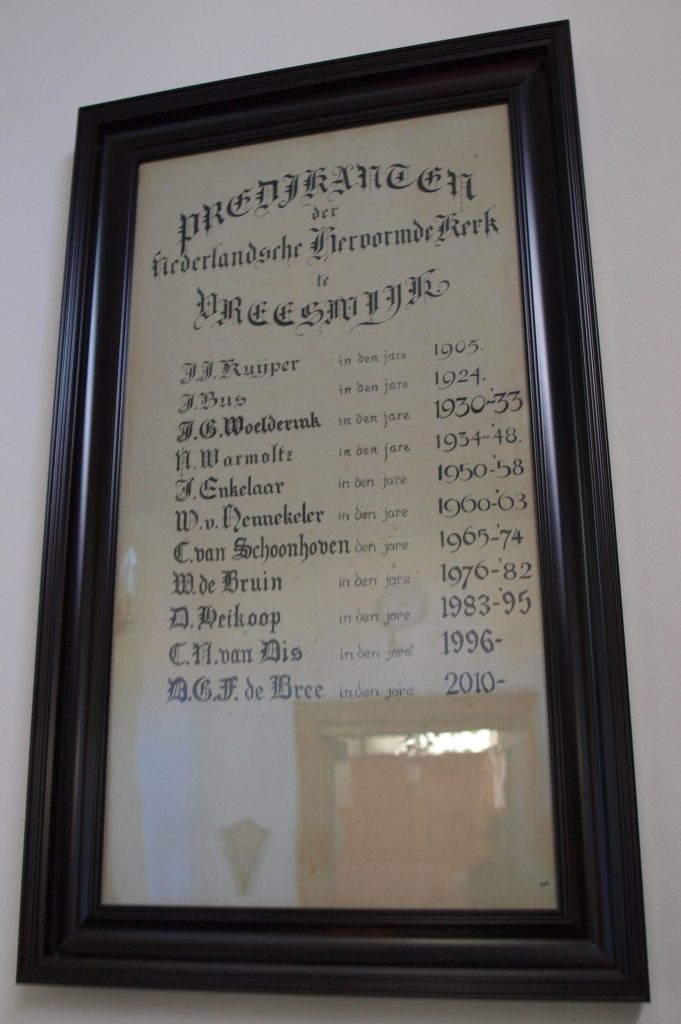 PREDIKANTEN
der
Nederlandsche Hervormde Kerk
te
VREESWIJK
J.J. Kuijper in den jare 1905.
J. Bus in den jare 1924.
J.G. Woelderink in den jare 1930-'33
N. Warmoltz in den jare 1934-'48.
J. Enkelaar in den jare 1950-'58
W.v. Hennekeler in den jare 1960-'63
C. van Schoonhoven den jare 1965-'74
W. de Bruin in den jare 1976-'82
D. Heikoop in den jare 1983-'95
C.N. van Dis in den jare 1996-
D.G.F. de Bree in den jare 2010-